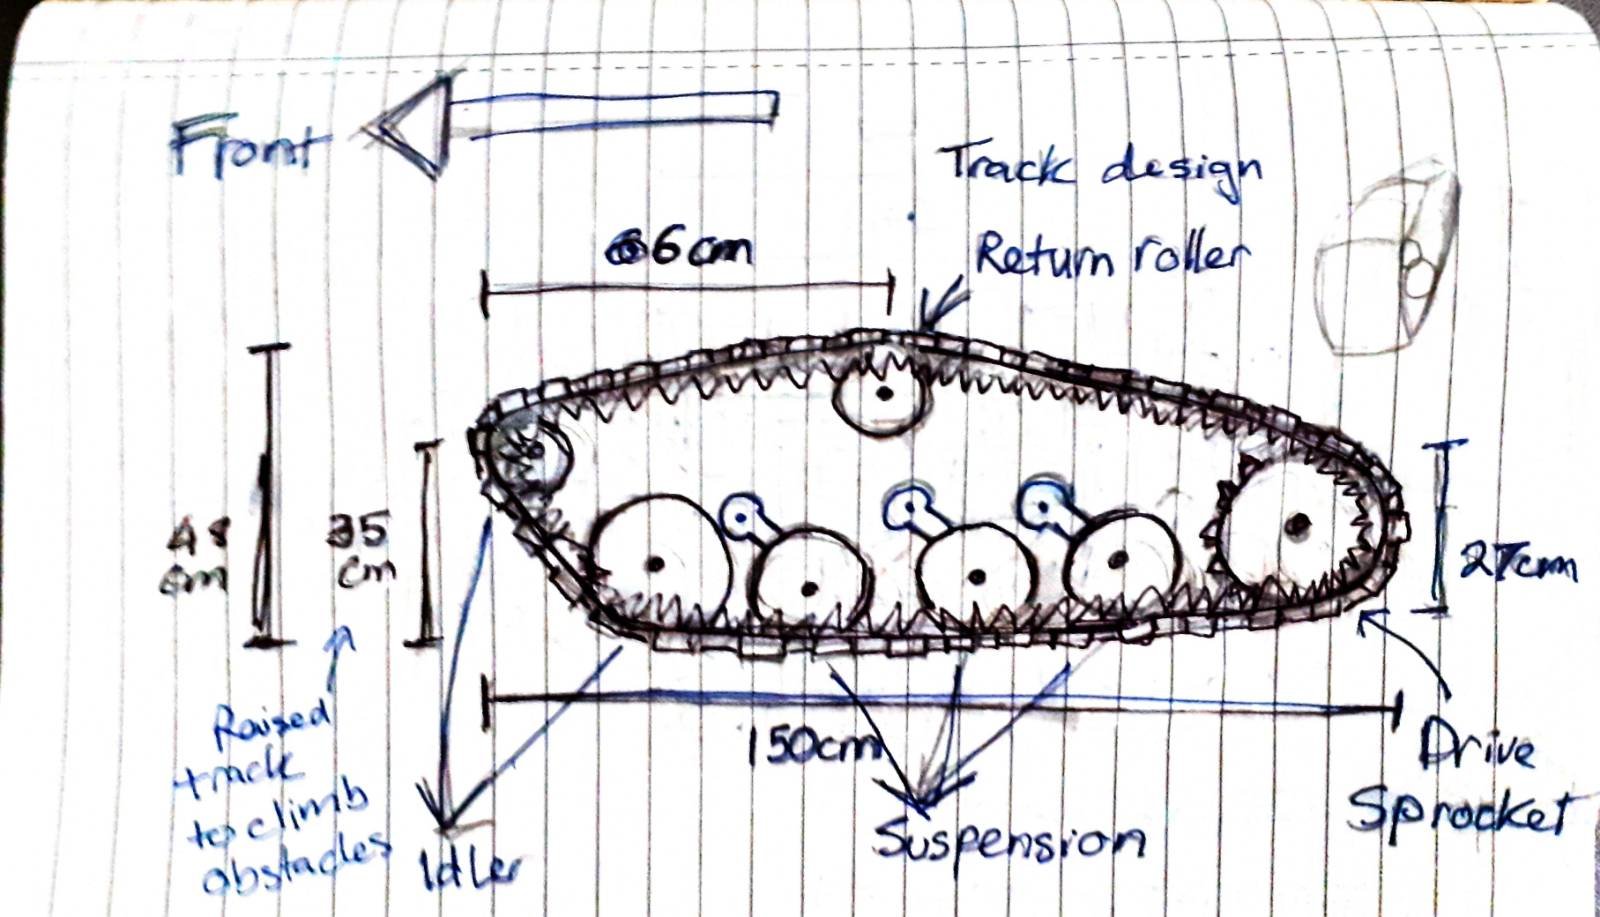 Front
Track design
66cm
Return roller
48
cm
35
cm
27cm
Raised
track
to climb
obstacles
150cm
Idler
Suspension
Drive
Sprocket